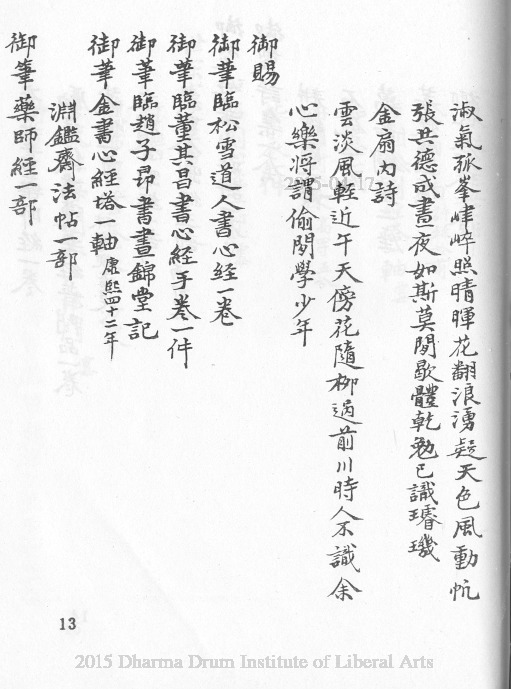 淑氣孤峯峍崪照晴暉花翻浪湧疑天色風動帆
張共德成晝夜如斯莫閒歇體乾勉已識璿璣
金扇內詩
雲淡風輕近午天傍花隨柳過前川時人不識余
心樂將謂偷閒學少年
御賜
御筆臨松雪道人書心經一卷
御筆臨董其昌書心經手卷一件
御筆臨趙子昂書晝錦堂記
御筆金書心經塔一軸康熙四十二年
淵鑑齋法帖一部
御筆藥師經一部
13
2015 Dharma Drum Institute of Liberal Arts